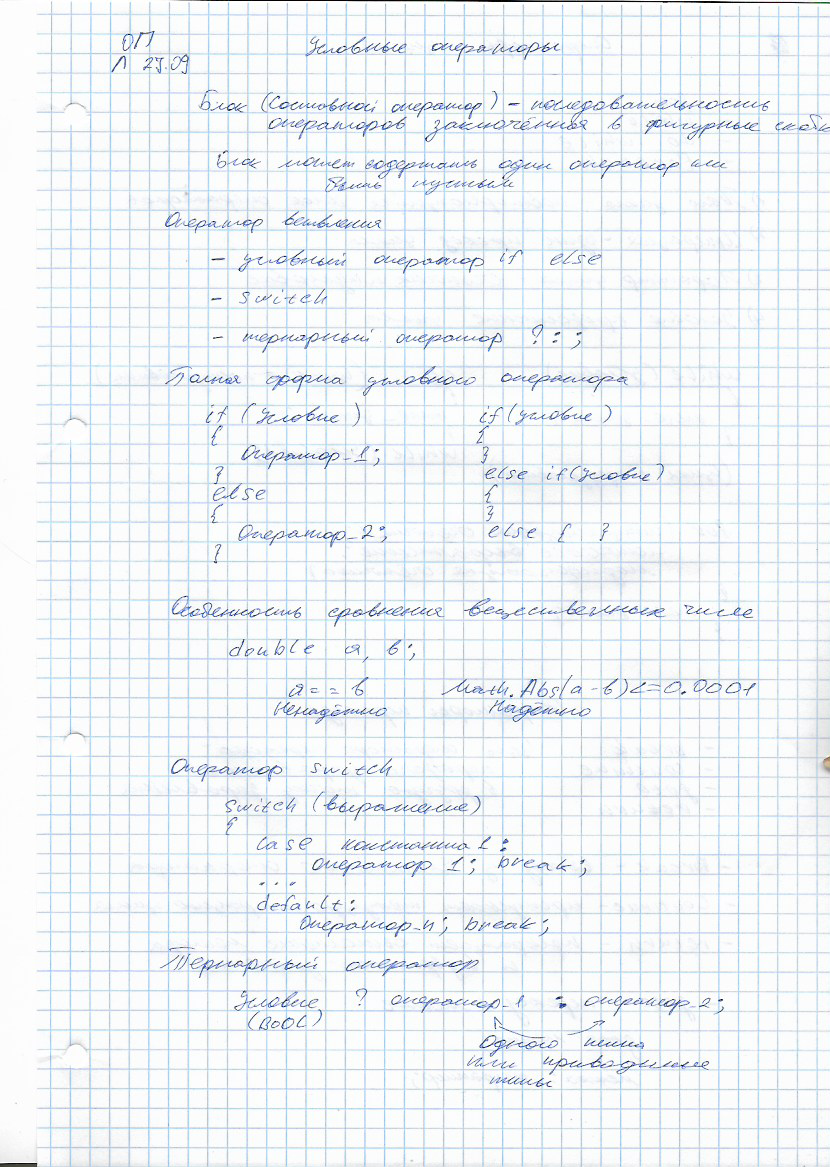 ОП
Л 27.09
Условные операторы
Блок (Составной оператор) – последовательность
операторов заключённая в фигурные скобк
Блок может содержать один оператор или
быть пустым
Оператор ветвления
– условный оператор if else
– switch
– тернарный оператор ? : ;
Полная форма условного оператора
if (Условие)
{
Оператор_1;
}
else
{
Оператор_2;
}
if (условие)
{
}
else if (Условие)
{
}
else { }
Особенность сравнения вещественных чисел
double a, b;
a == b Math.Abs(a-b)<=0.0001
Ненадёжно Надёжно
Оператор switch
switch (выражение)
{
case константа 1:
оператор 1; break;
...
default:
Оператор_n; break;
Тернарный оператор
Условие ? оператор_1 : оператор_2;
(BOOL)
Одного типа
или приводимые
типы